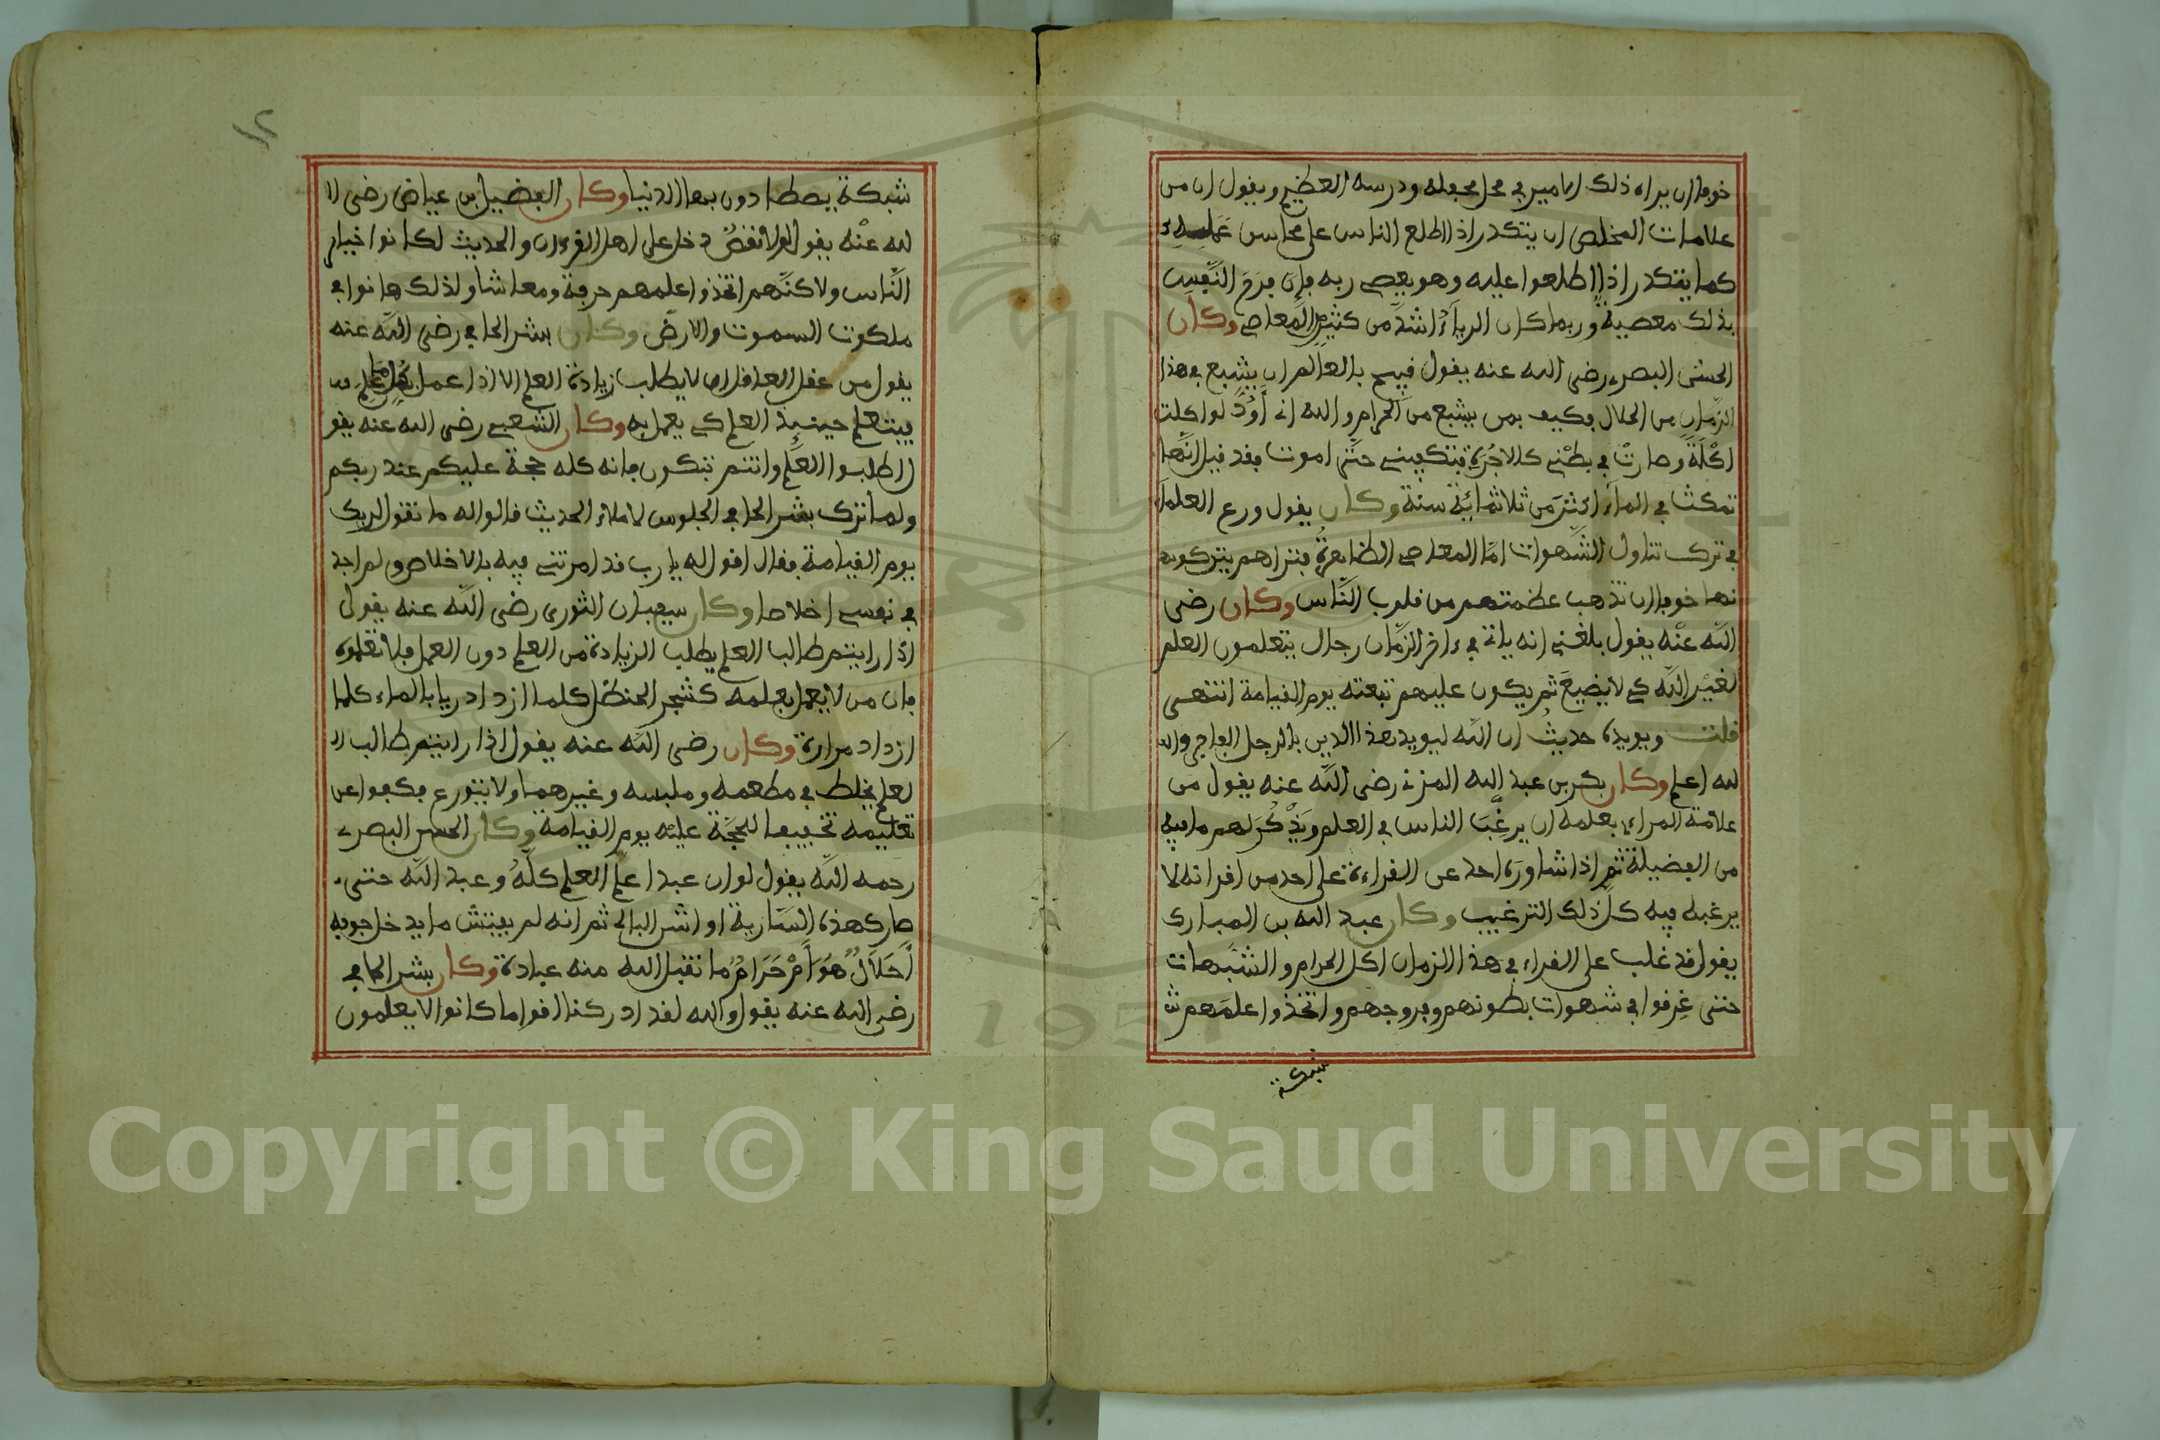 خوفا ان يراه ذلك الامير في محل محفله ودرسه العظيم ويقول ان من
علامات المخلص ان يتكدر اذا اطلع الناس على محاسن عمله
كما يتكدر اذا اطلعوا عليه وهو يعصي ربه فإن فرح النفس
بذلك معصية وربما كان الرياء اشد من كثير المعاصي وكان
الحسن البصري رضي الله عنه يقول قبيح بالعالم ان يشبع في هذا
الزمان من الحلال فكيف بمن يشبع من الحرام والله اني أود لو اكلت
اكلة وصارت في بطني كالاجرة فتكفيني حتى اموت فقد قيل انها
تمكث في الماء اكثر من ثلاثمائة سنة وكان يقول ورع العلماء
في ترك تناول الشهوات اما المعاصي الظاهرة فتراهم يتركو
نها خوفا ان تذهب عظمتهم من قلوب الناس وكان رضي
الله عنه يقول بلغني انه ياتي في ءاخر الزمان رجال يتعلمون العلم
لغير الله كي لا يضيع ثم يكون عليهم تبعته يوم القيامة انتهى
قلت ويويده حديث ان الله ليويد هذا الدين بالرجل الفاجر وا
لله اعلم وكان بكر بن عبد الله المزني رضي الله عنه يقول من
علامة المراءي بعلمه ان يرغب الناس في العلم ويذكر لهم ما فيه
من الفضيلة ثم اذا شاوره احد عن القراءة على احد من اقرانه لا
يرغبه فيه كل ذلك الترغيب وكان عبد الله بن المبارك
يقول قد غلب على القراء في هذا الزمان اكل الحرام والشبهات
حتى غرفوا في شهوات بطونهم وفروجهم واتخذوا علمهم ش
شبكة
شبكة يصطادون بها الدنيا وكان الفضيل بن عياض رضي ا
لله عنه يقول لولا نقص دخل على اهل القرءان والحديث لكانوا خيار
الناس ولاكنهم اتخذوا علمهم حرفة ومعاشا ولذلك هانوا في
ملكوت السموت والارض وكان بشر الحافي رضي الله عنه
يقول من عقل العاقل ان لا يطلب زيادة العلم الا اذا عمل بكل ما علم
فيتعلم حينيذ العلم كي يعمل به وكان الشعبي رضي الله عنه يقو
ل اطلبوا العلم وانتم تبكون فانه كله حجة عليكم عند ربكم
ولما ترك بشر الحافي الجلوس لاملاء الحديث قالوا له ما تقول لربك
يوم القيامة فقال اقول له يارب قد امرتني فيه بالاخلاص ولم اجد
في نفسي اخلاصا وكان سفيان الثوري رضي الله عنه يقول
اذا رايتم طالب العلم يطلب الزيادة من العلم دون العمل فلا تعلموه
فان من لا يعمل بعلمه كشجر الحنظل كلما ازداد ريا بالماء كلما
ازداد مرارة وكان رضي الله عنه يقول اذا رايتم طالب ا
لعلم يخلط في مطعمه وملبسه وغيرهما ولا يتورع فكفوا عن
تعليمه تخفيفا للحجة عليه يوم القيامة وكان الحسن البصري
رحمه الله يقول لو ان عبدا علم العلم كله وعبد الله حتى
صار كهذه السارية او الشن البالي ثم انه لم يفتش ما يدخل جوفه
أحلال هو أم حرام ما تقبل الله منه عبادة وكان بشر الحافي
رضي الله عنه يقول والله لقد ادركنا اقواما كانوا لا يعلمون
Copyright © King Saud University
1957